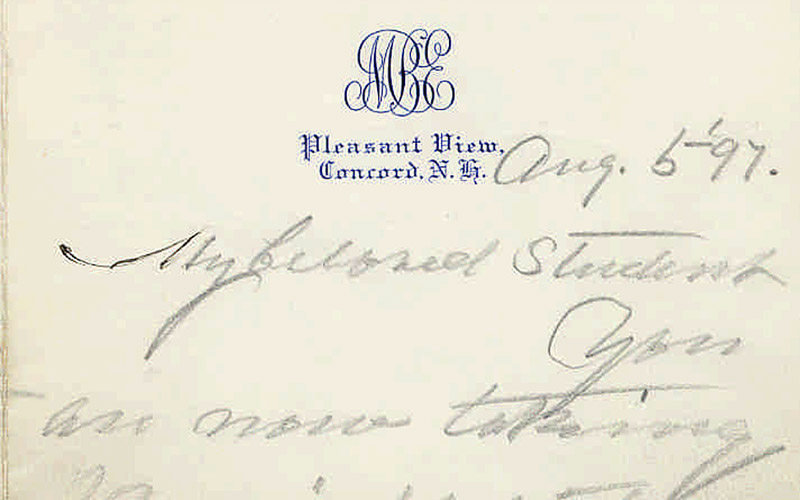 MBE
Pleasant View,
Concord, N. H. Aug. 5 '97.
My beloved Student
You
are now taking